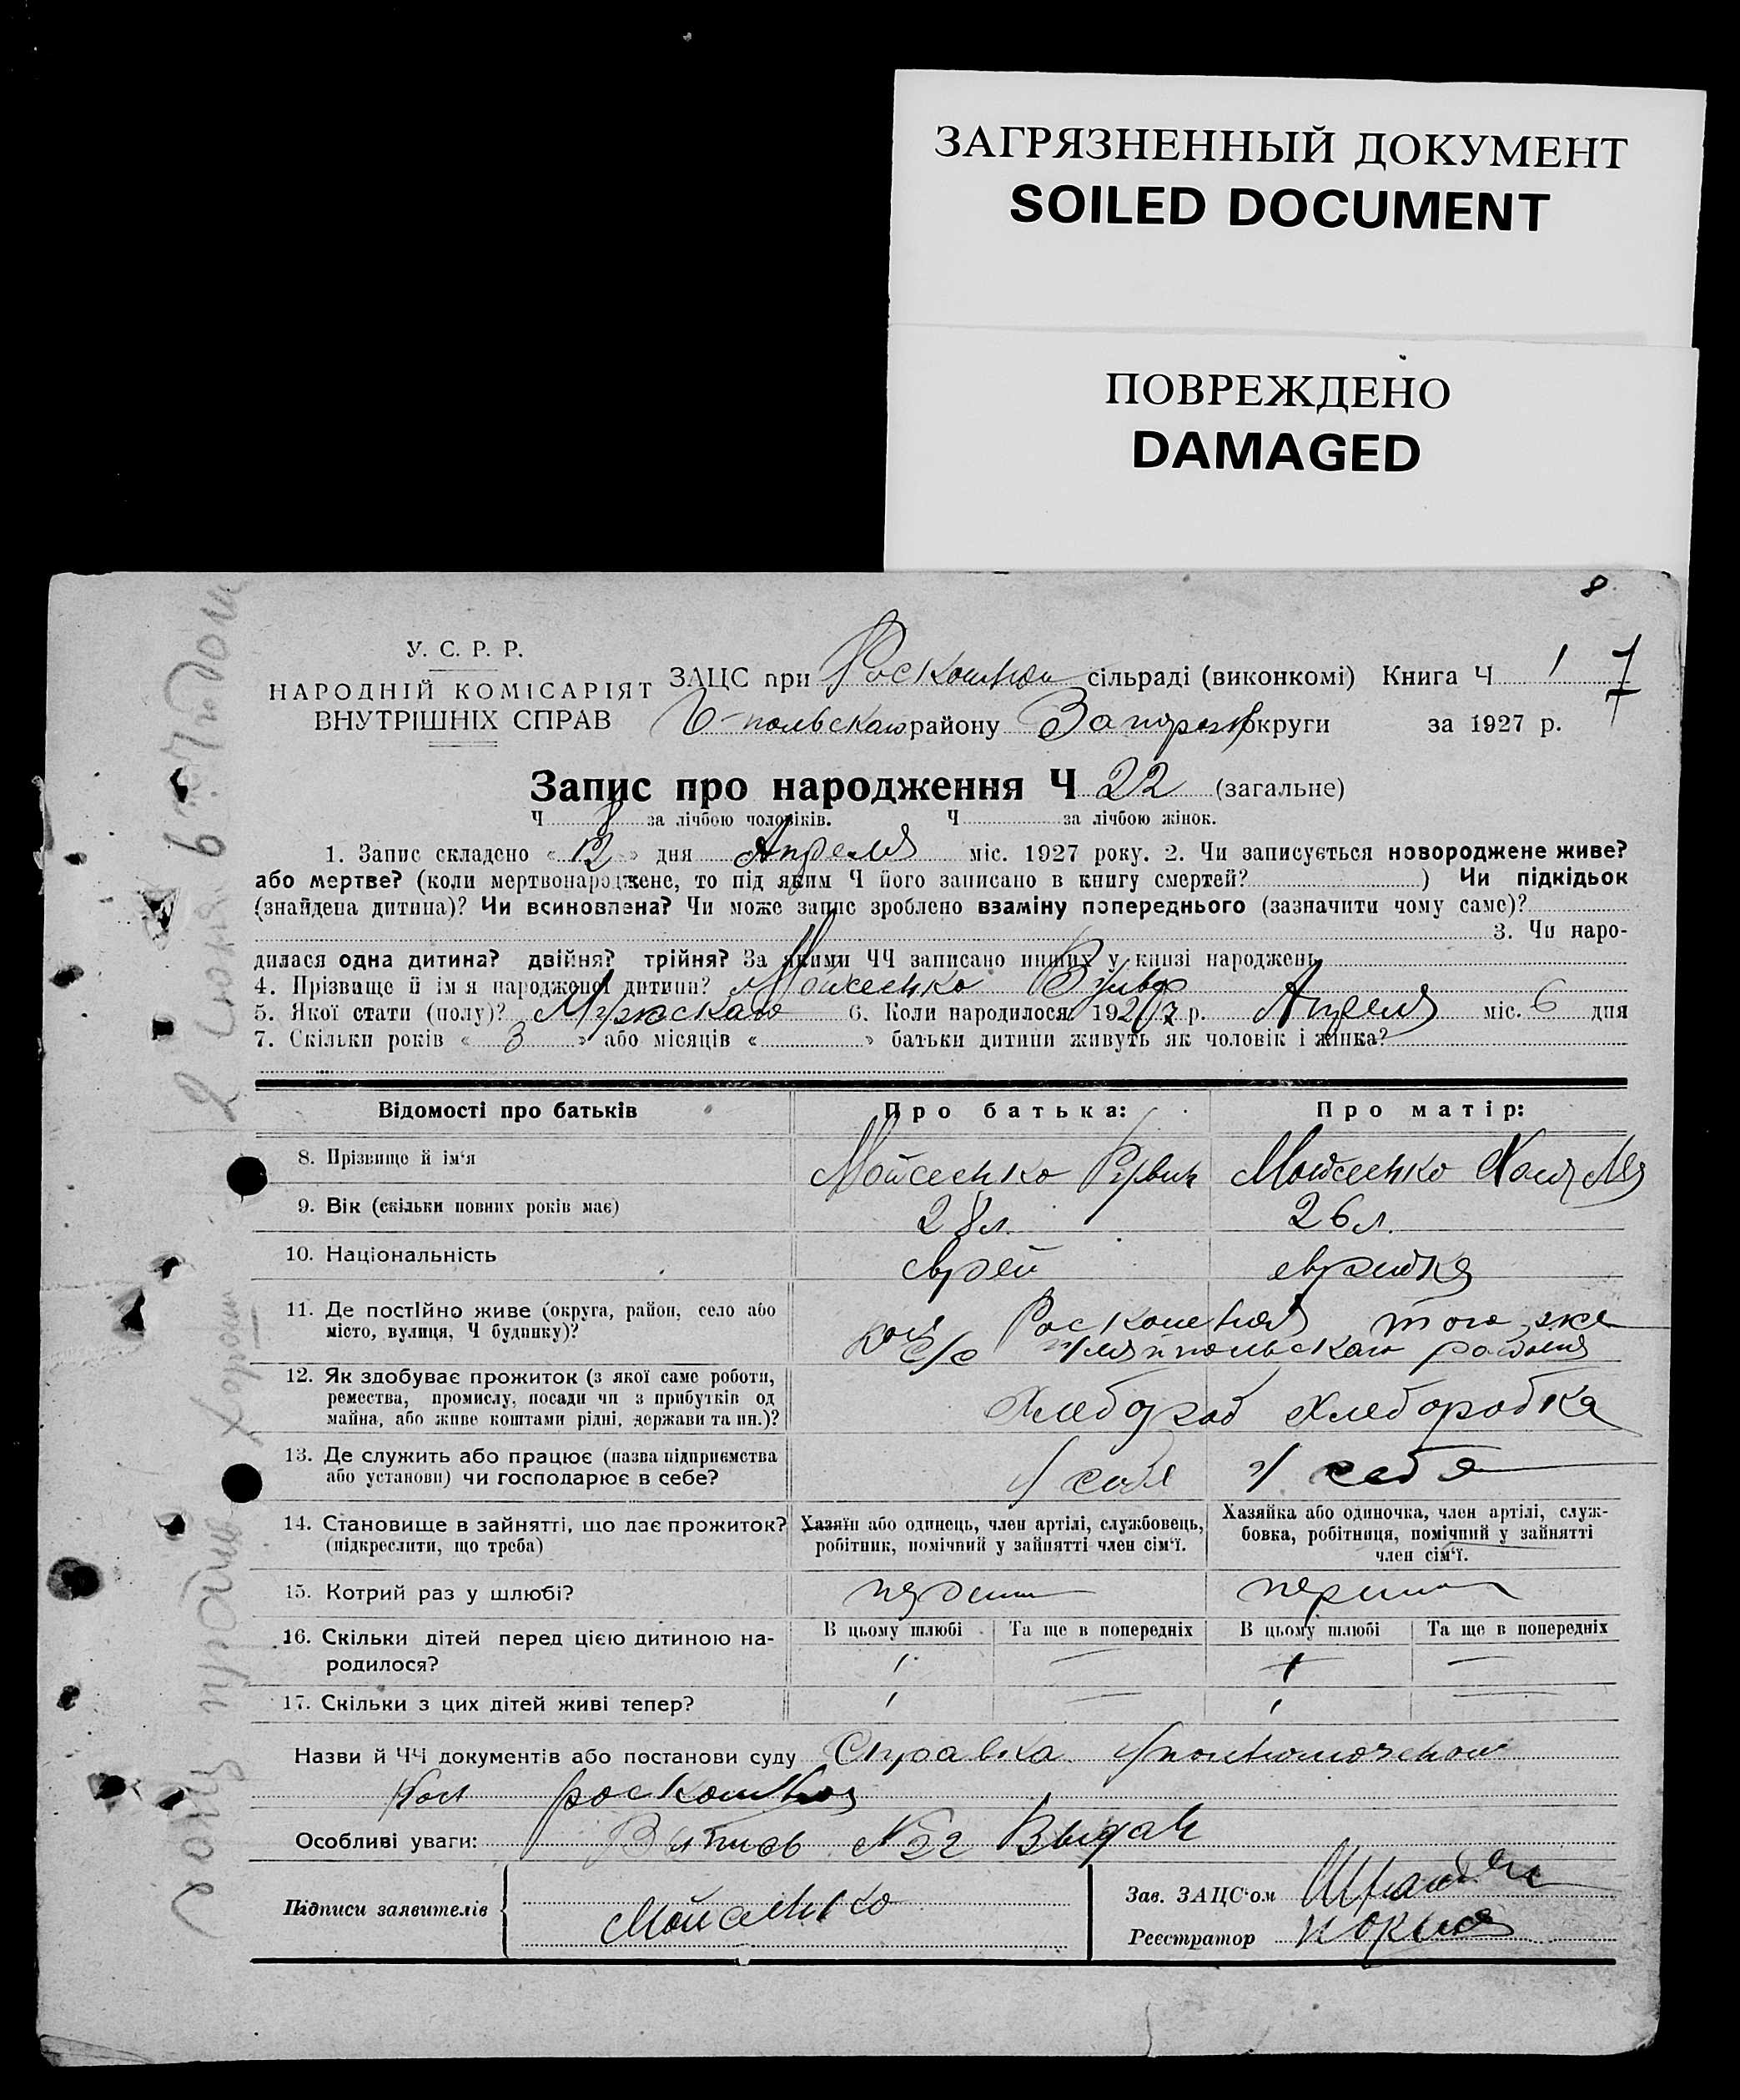 ЗАГРЯЗНЕННЫЙ ДОКУМЕНТ
SOILED DOCUMENT
ПОВРЕЖДЕНО
DAMAGED
8
У. С. Р. Р.
НАРОДНІЙ КОМІСАРІЯТ
ВНУТРІШНІХ СПРАВ
ЗАЦС при сільраді (виконкомі) Книга Ч 1 7
району округи за 1927 р.
Запис про народження Ч 22 (загальне)
Ч 8 за лічбою чоловіків. Ч за лічбою жінок.
1. Запис складено « 12 » дня Апреля міс. 1927 року. 2. Чи записується новороджене живе?
або мертве? (коли мертвонароджене, то під яким Ч його записано в книгу смертей? ) Чи підкідьок
(знайдена дитина)? Чи всиновлена? Чи може запис зроблено взаміну попереднього (зазначити чому саме)?
3. Чи наро-
дилася одна дитина? двійня? трійня? За якими ЧЧ записано инших у книзі народжень
4. Прізвище й ім'я народженої дитини? Мойсенко
5. Якої стати (полу)? Мужскаго 6. Коли народилося 1927 р. Апреля міс. 6 дня
7. Скільки років « 3 » або місяців « » батьки дитини живуть як чоловік і жінка?
Відомості про батьків
Про батька:
Про матір:
8. Прізвище й ім'я
Мойсенко
Мойсенко
9. Вік (скільки повних років має)
28 л.
26 л.
10. Національність
еврей
еврейка
11. Де постійно живе (округа, район, село або
місто, вулиця, Ч будинку)?
Роскошная того же
района
12. Як здобуває прожиток (з якої саме роботи,
ремества, промислу, посади чи з прибутків од
майна, або живе коштами рідні, держави та ин.)?
Хлебороб
Хлеборобка
13. Де служить або працює (назва підприємства
або установи) чи господарює в себе?
у себя
у себя
14. Становище в зайнятті, що дає прожиток?
(підкреслити, що треба)
Хазяїн або одинець, член артілі, службовець,
робітник, помічний у зайнятті член сім'ї.
Хазяйка або одиночка, член артілі, служ-
бовка, робітниця, помічний у зайнятті
член сім'ї.
15. Котрий раз у шлюбі?
первый
первый
16. Скільки дітей перед цією дитиною на-
родилося?
В цьому шлюбі
Та ще в попередніх
В цьому шлюбі
Та ще в попередніх
1 — 1 —
17. Скільки з цих дітей живі тепер?
1 — 1 —
Назви й ЧЧ документів або постанови суду Справка уполномоченого
Роскошная
Особливі уваги: Выпись №22 Выдан
Підписи заявителів
Мойсенко
Зав. ЗАЦС'ом
Реєстратор